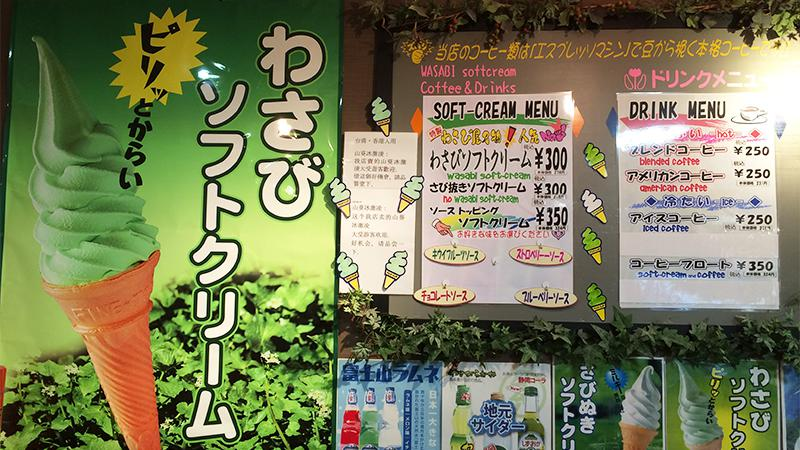 わさび
ソフトクリーム
ピリッ
とからい
当店のコーヒー類は「エスプレッソマシン」で豆から挽く本格コーヒーで
WASABI softcream
Coffee & Drinks
ドリンクメニュー
SOFT-CREAM MENU
わさびソフトクリーム ¥300
wasabi soft-cream
さび抜きソフトクリーム ¥300
no wasabi soft-cream
ソーストッピング
ソフトクリーム ¥350
お好きな味をお選びください
キウイフルーツソース
ストロベリーソース
チョコレートソース
ブルーベリーソース
DRINK MENU
hot
ブレンドコーヒー ¥250
blended coffee
アメリカンコーヒー ¥250
american coffee
冷たい ice
アイスコーヒー ¥250
Iced coffee
コーヒーフロート ¥350
soft-cream and coffee
台湾・香港人用
山葵冰激凌:
山葵冰激凌:
富士山ラムネ
日本一大きな
静岡コーラ
地元
サイダー
さびぬき
ソフトクリ
ピリッとからい
わさび
ソフトク